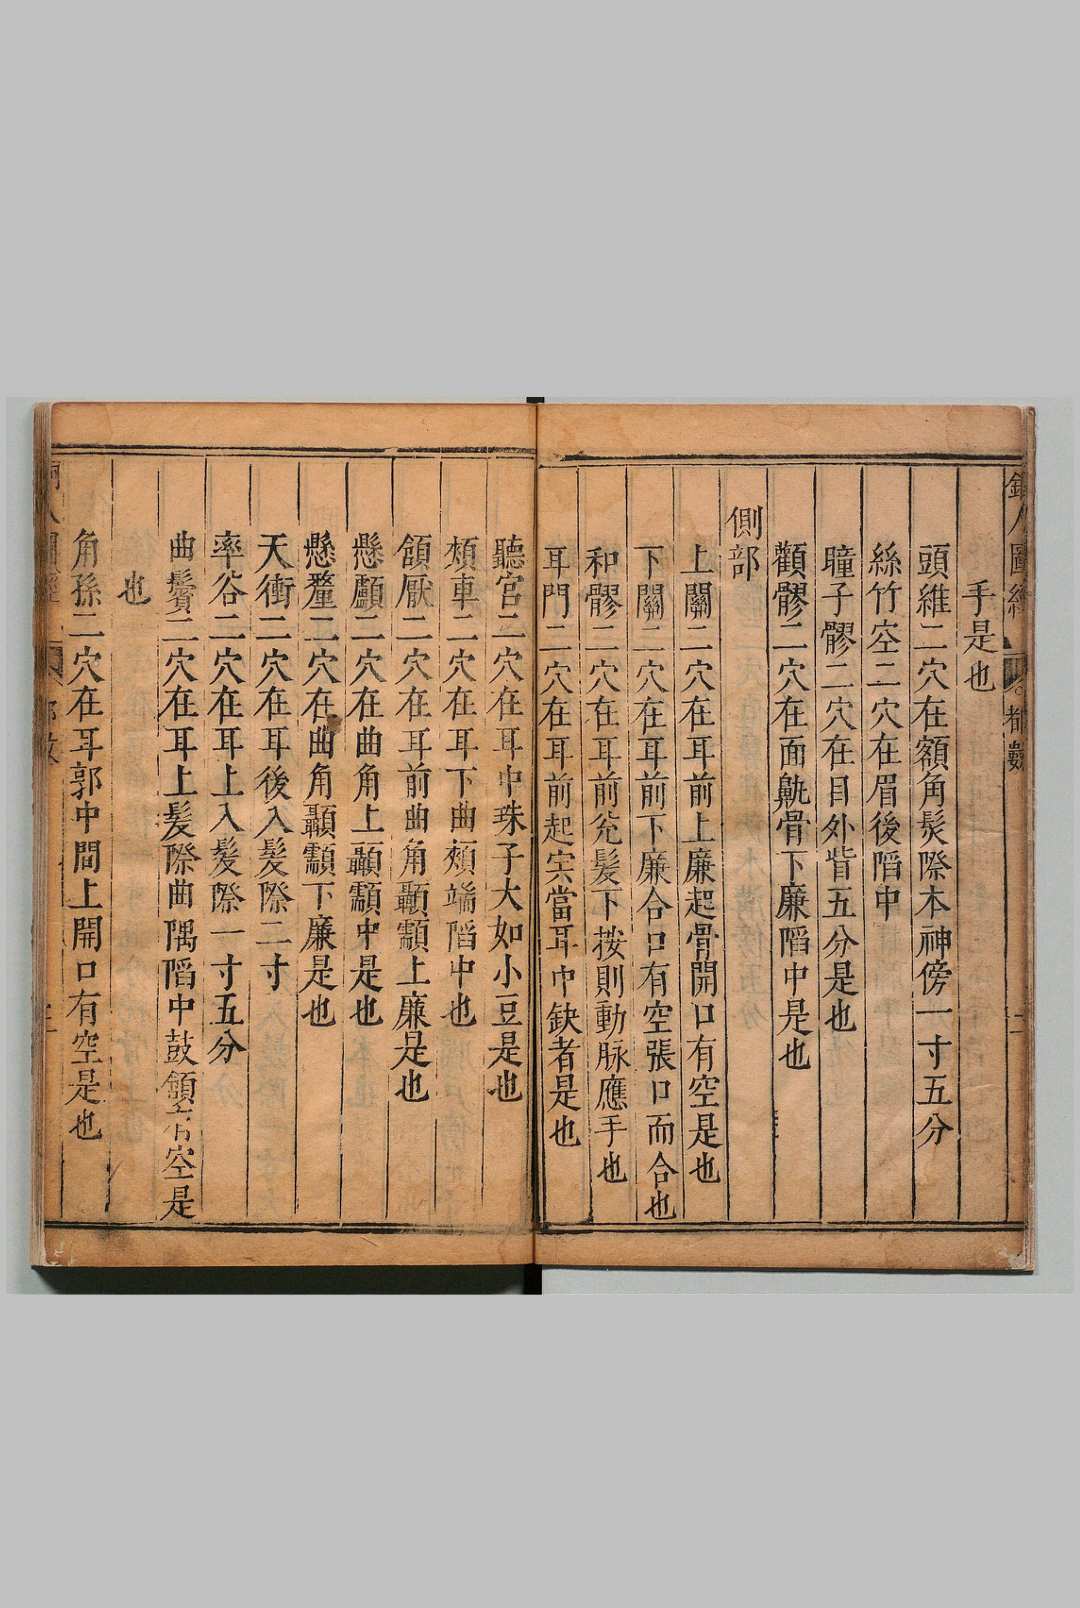 手是也
頭維二穴在額角髮際本神傍一寸五分
絲竹空二穴在眉後陷中
瞳子髎二穴在目外眥五分是也
顴髎二穴在面鼽骨下廉陷中是也
側部
上關二穴在耳前上廉起骨開口有空是也
下關二穴在耳前下廉合口有空張口而合也
和髎二穴在耳前兊髮下按則動脉應手也
耳門二穴在耳前起宍當耳中缺者是也
聽宮二穴在耳中珠子大如小豆是也
頰車二穴在耳下曲頰端陷中也
頷厭二穴在耳前曲角顳顬上廉是也
懸顱二穴在曲角上顳顬中是也
懸釐二穴在曲角顳顬下廉是也
天衝二穴在耳後入髮際二寸
率谷二穴在耳上入髮際一寸五分
曲鬢二穴在耳上髮際曲隅陷中鼓頷有空是
也
角孫二穴在耳郭中間上開口有空是也